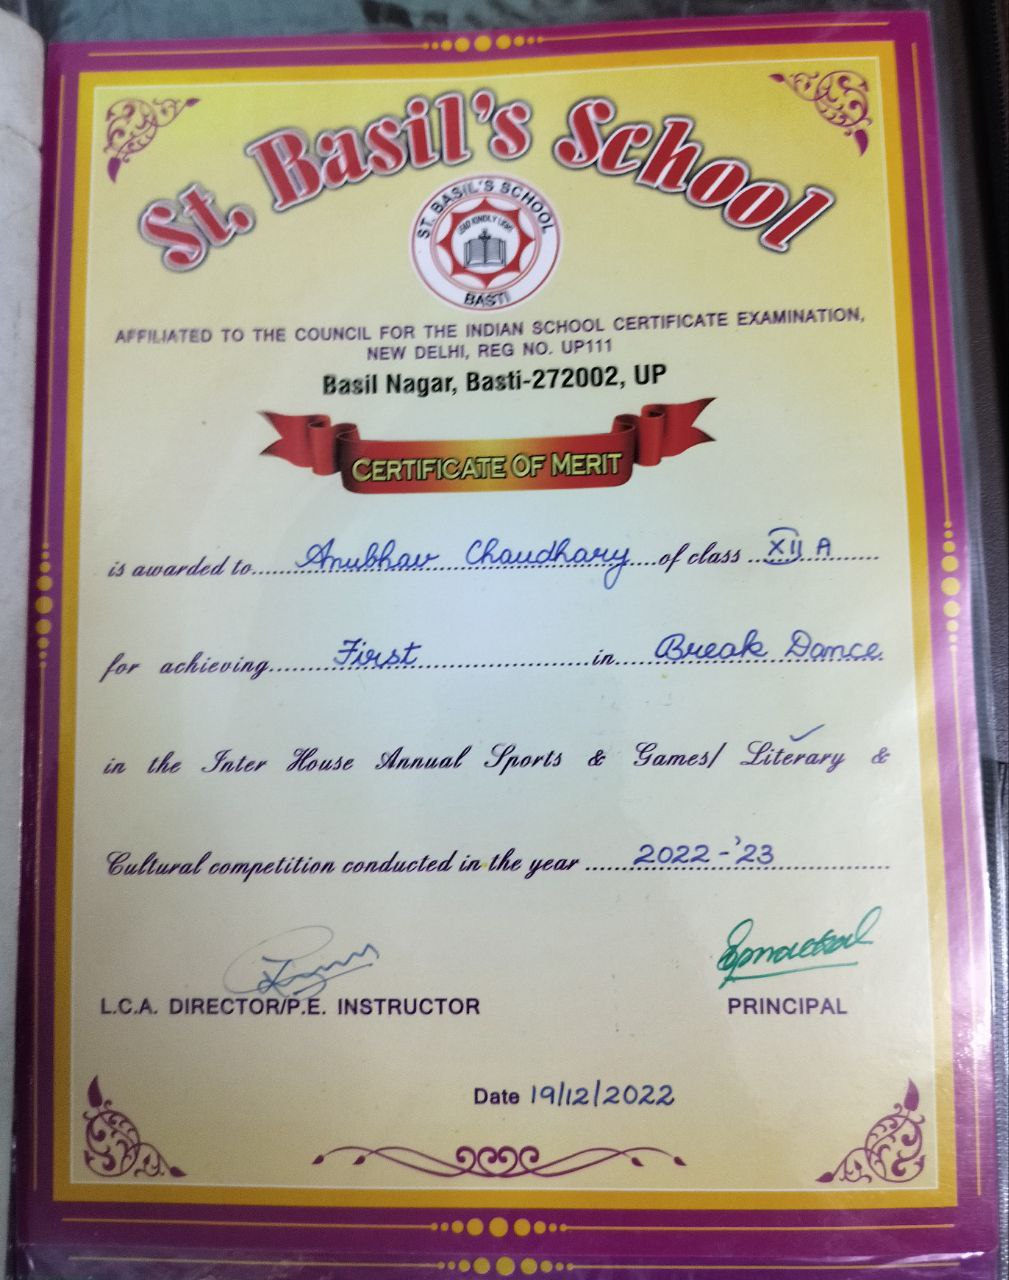 St. Basil's School
ST. BASIL'S SCHOOL
LEAD KINDLY LIGHT
BASTI
AFFILIATED TO THE COUNCIL FOR THE INDIAN SCHOOL CERTIFICATE EXAMINATION,
NEW DELHI, REG NO. UP111
Basil Nagar, Basti-272002, UP
CERTIFICATE OF MERIT
is awarded to Anubhav Chaudhary of class XII A
for achieving First in Break Dance
in the Inter House Annual Sports & Games/ Literary &
Cultural competition conducted in the year 2022-'23
L.C.A. DIRECTOR/P.E. INSTRUCTOR PRINCIPAL
Date 19/12/2022